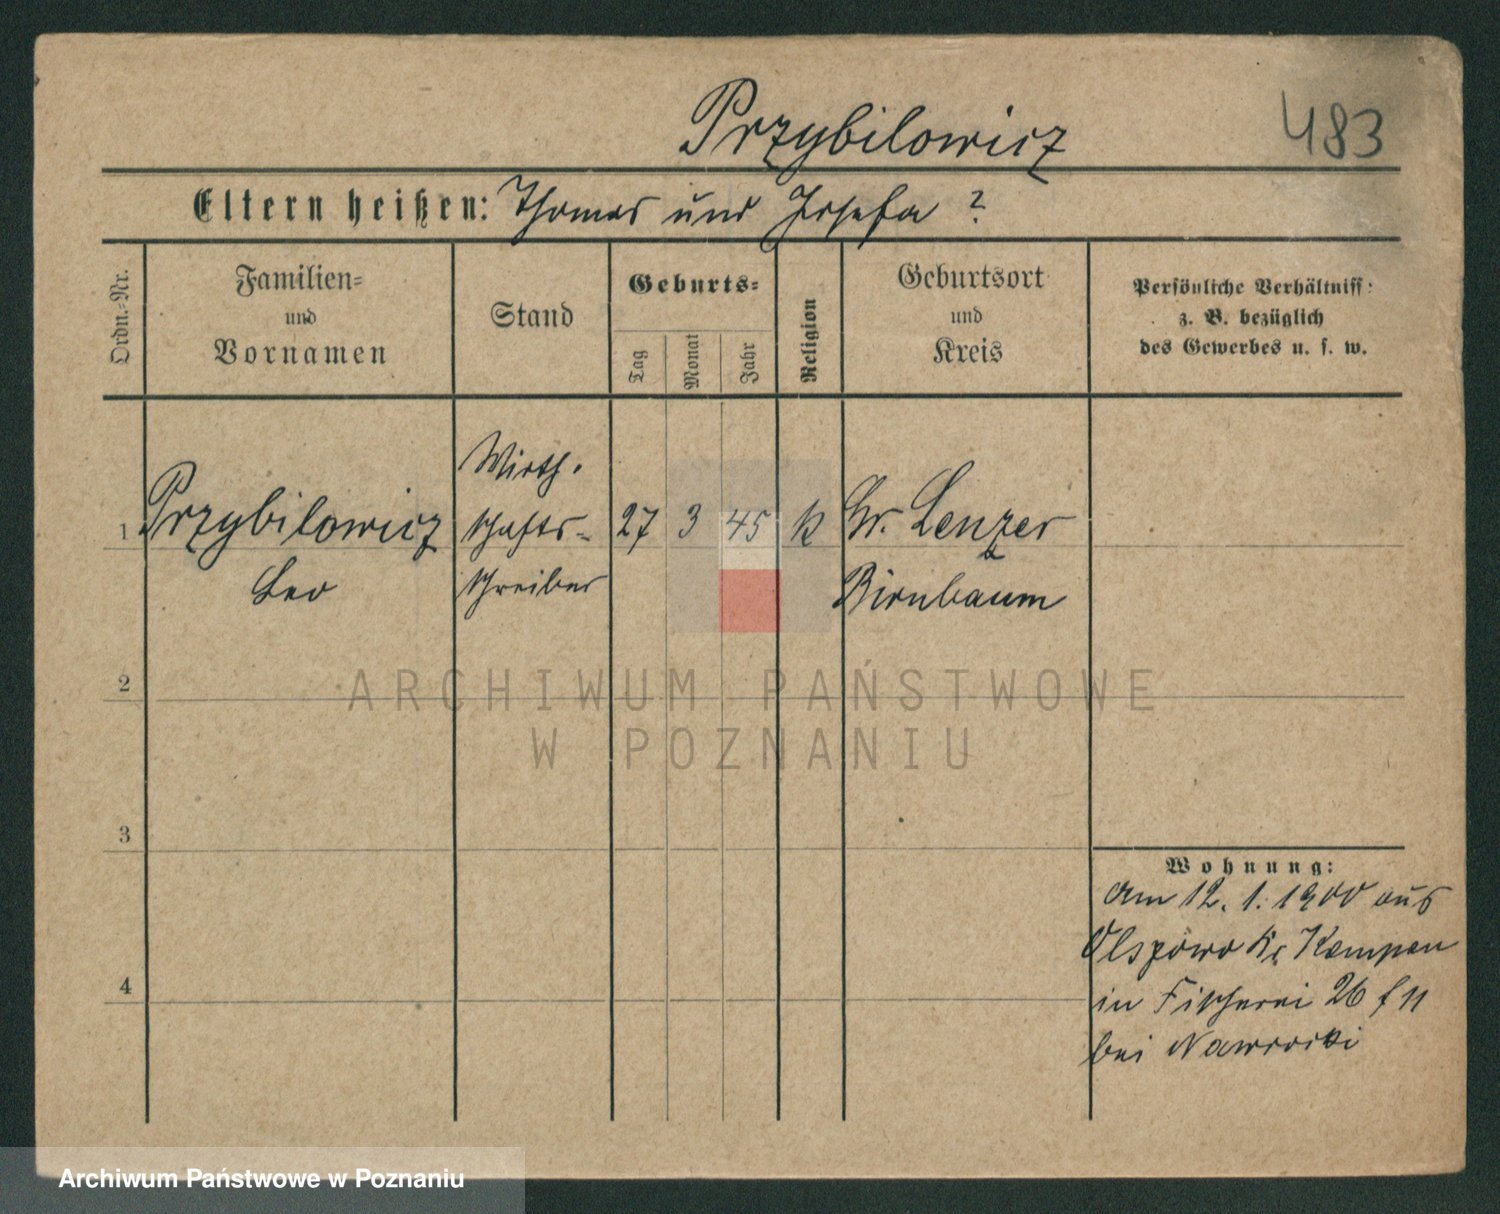 Przybilowicz
483
Eltern heißen: Thomas und Josefa ?
Ordn.-Nr.
Familien-
und
Vornamen
Stand
Geburts-
Tag
Monat
Jahr
Religion
Geburtsort
und
Kreis
Persönliche Verhältniss:
z. B. bezüglich
des Gewerbes u. s. w.
1
Przybilowicz
Leo
Wirth-
schafts-
schreiber
27 3 45 k
Gr. Lenzer
Birnbaum
2
3
4
Wohnung:
am 12. 1. 1900 aus
Kr Kempen
in Fischerei 26
bei Nawrocki
ARCHIWUM PAŃSTWOWE
W POZNANIU
Archiwum Państwowe w Poznaniu